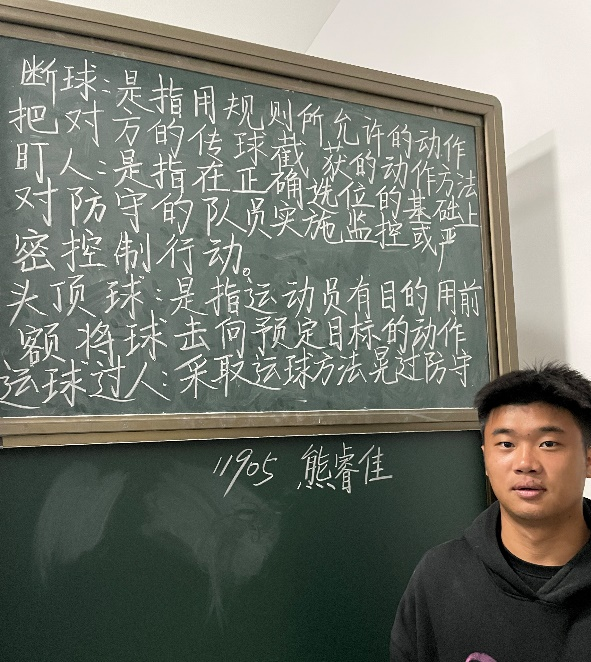 断球:是指用规则所允许的动作
把对方的传球截获的动作方法
盯人:是指在正确选位的基础上
对防守的队员实施监控或严
密控制行动。
头顶球:是指运动员有目的用前
额将球击向预定目标的动作
运球过人:采取运球方法晃过防守
11905 熊睿佳